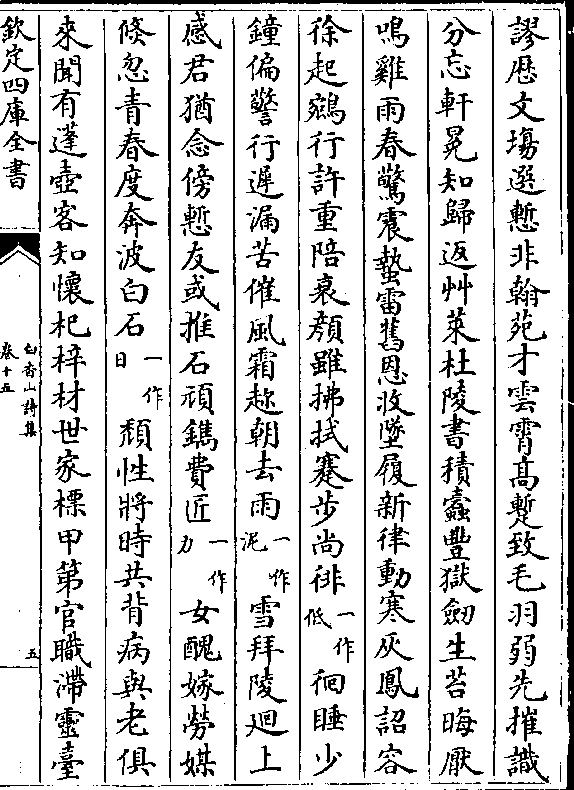 謬歴文場選慙非翰苑才雲霄髙蹔致毛羽弱先摧識
分忘軒冕知歸返艸萊杜陵書積蠧豐獄劒生苔晦厭
鳴雞雨春驚震蟄雷舊恩收墜履新律動寒灰鳳詔容
徐起鵷行許重陪衰顔雖拂拭蹇步尚徘一作低徊睡少
鐘偏警行遲漏苦催風霜趂朝去雨一作泥雪拜陵迴上
感君猶念傍慙友或推石頑鐫費匠一作力女醜嫁勞媒
倐忽青春度奔波白石一作日頽性將時共背病與老俱
來聞有蓬壺客知懷杞梓材世家標甲第官職滯靈臺
欽定四庫全書
白香山詩集
卷十五
五